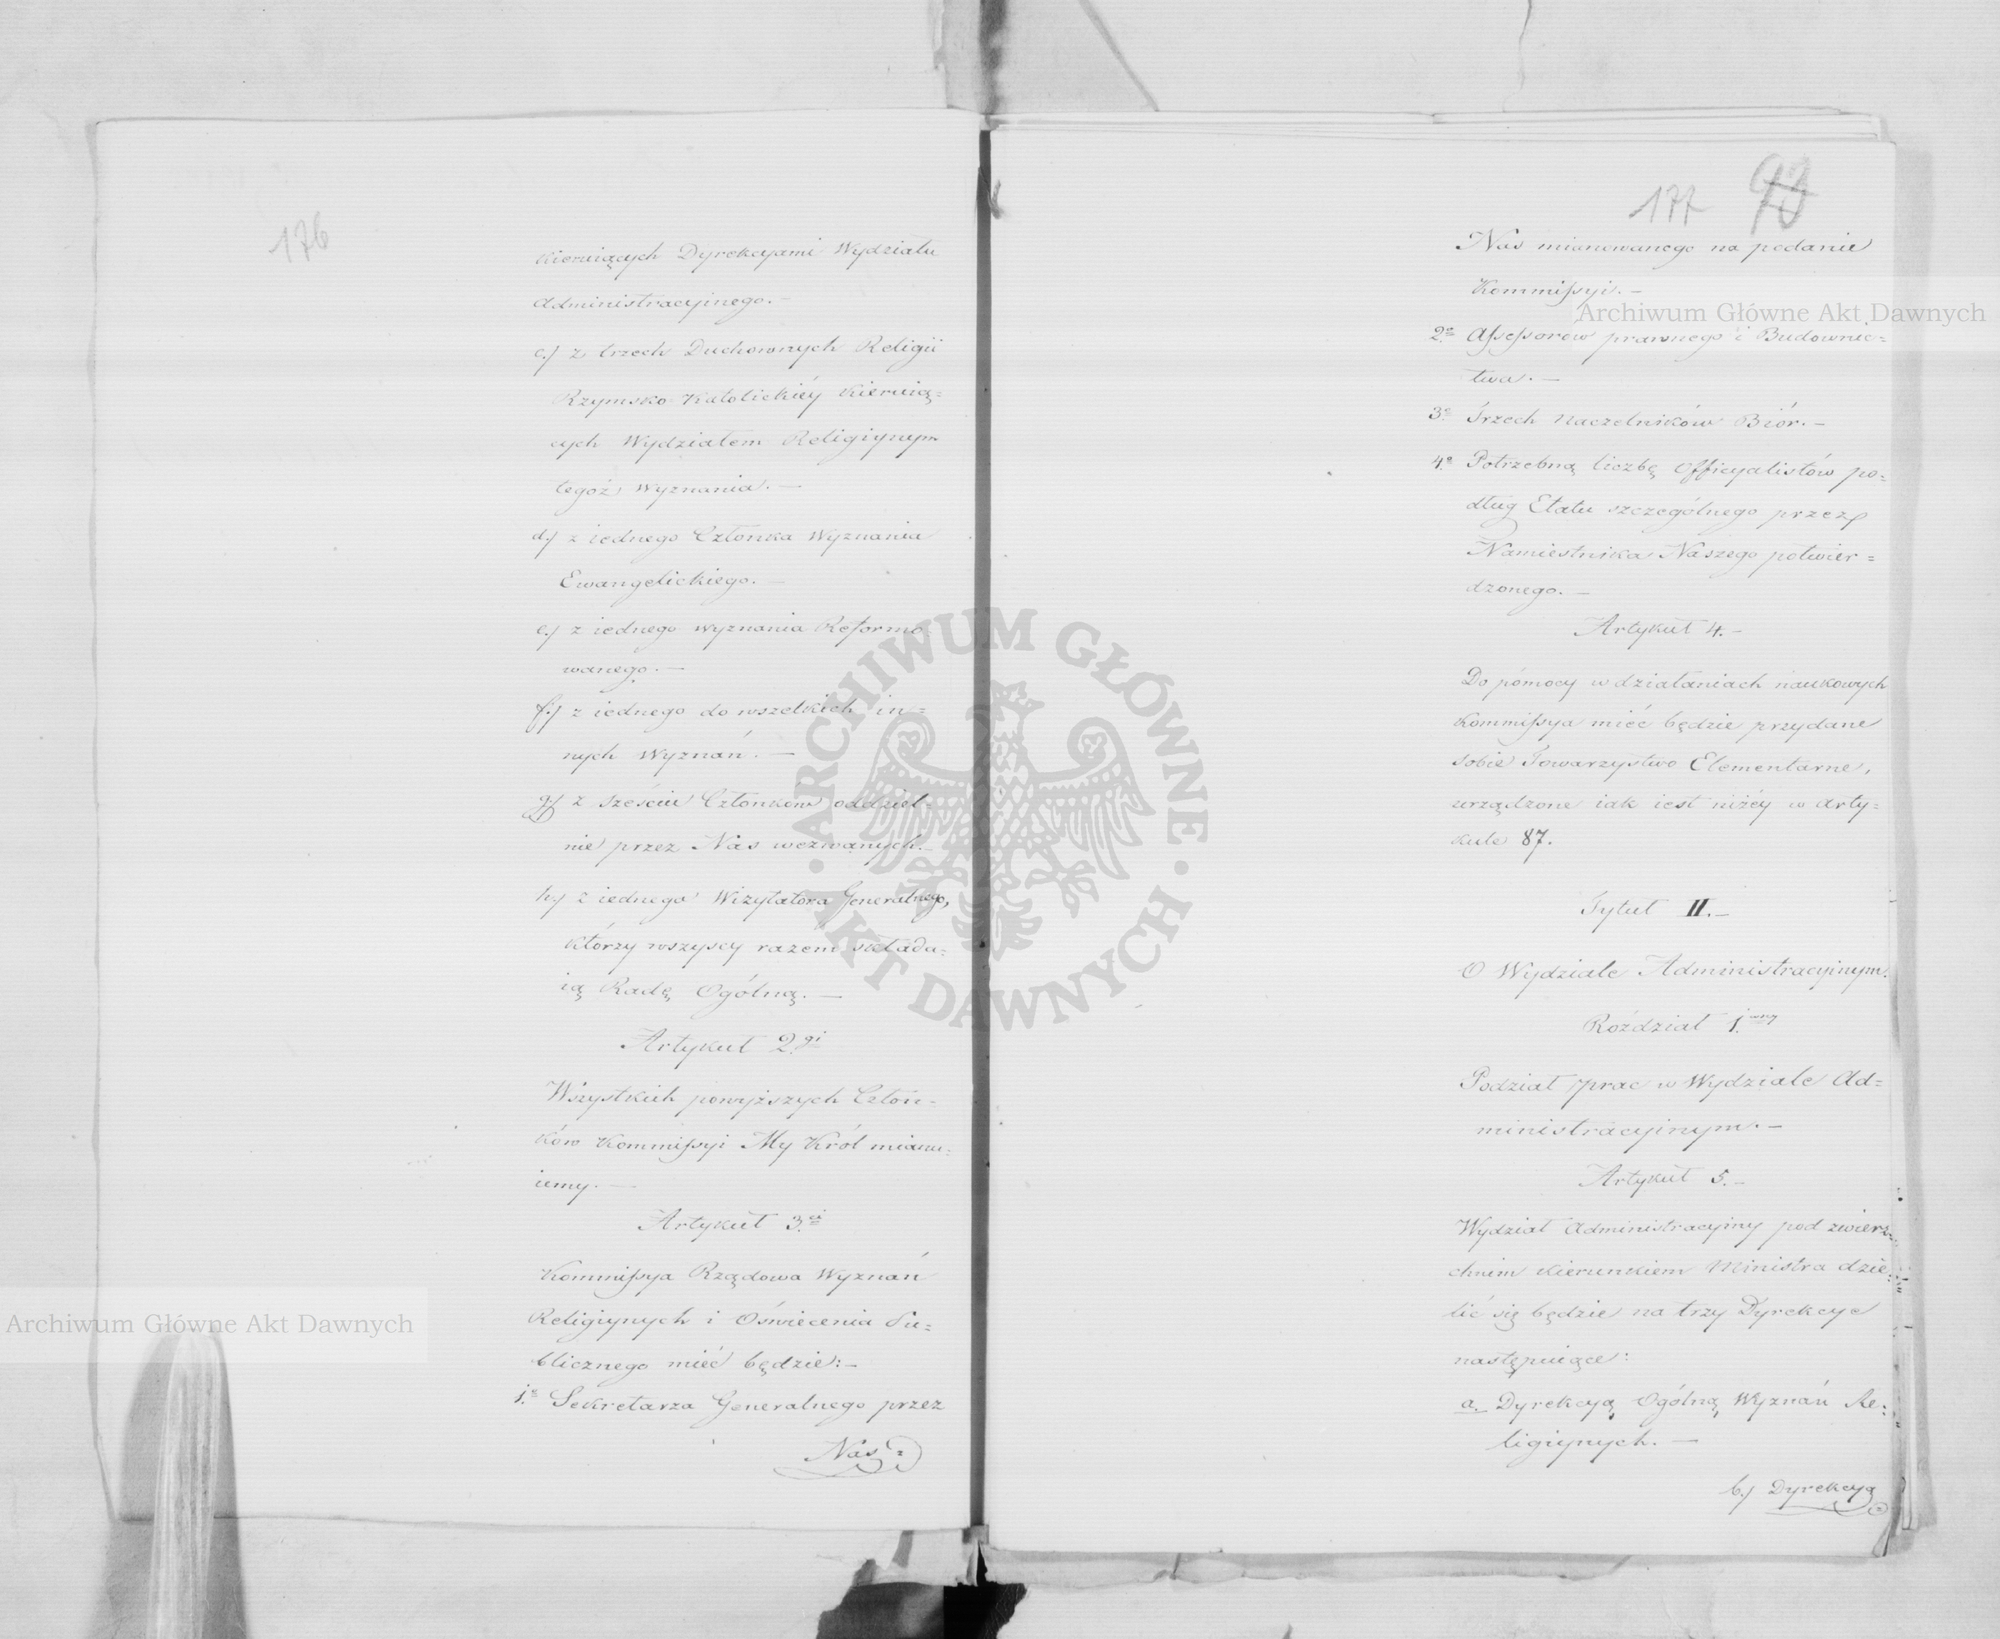 176
kieruiących Dyrekcyami Wydziału
Administracyinego. –
c.) z trzech Duchownych Religii
Rzymsko Katolickiéy kieruią=
cych Wydziałem Religiynym
tegoż Wyznania. –
d.) z iednego Członka Wyznania
Ewangelickiego. –
e.) z iednego wyznania Reformo=
wanego. –
f.) z iednego do wszelkich in=
nych Wyznań. –
g.) z sześciu Członków oddziel=
nie przez Nas wezwanych. –
h.) z iednego Wizytatora Generalnego,
którzy wszyscy razem składa=
ią Radę Ogólną. –
Artykuł 2.gi
Wszystkich powyższych Człon=
ków Kommissyi My Król mianu=
iemy. –
Artykuł 3.ci
Kommissya Rządowa Wyznań
Religiynych i Oświecenia Pu=
blicznego mieć będzie: –
1.o Sekretarza Generalnego przez
Nas
177 93
Nas mianowanego na podanie
Kommissyi. –
2.o Assessorów prawnego i Budownic=
twa. –
3.o Trzech Naczelników Biór. –
4.o Potrzebną liczbę Officyalistów po=
dług Etatu szczególnego przez
Namiestnika Naszego potwier=
dzonego. –
Artykuł 4. –
Do pomocy w działaniach naukowych
Kommissya mieć będzie przydane
sobie Towarzystwo Elementarne,
urządzone iak iest niżéy w arty=
kule 87.
Tytuł II. –
O Wydziale Administracyinym.
Roździał 1.wszy
Podział prac w Wydziale Ad=
ministracyinym. –
Artykuł 5. –
Wydział Administracyiny pod zwierz=
chnim kierunkiem Ministra dzie=
lić się będzie na trzy Dyrekcye
następuiące:
a. Dyrekcyą Ogólną Wyznań Re=
ligiynych. –
b.) Dyrekcyą
Archiwum Główne Akt Dawnych
Archiwum Główne Akt Dawnych
ARCHIWUM GŁÓWNE
AKT DAWNYCH